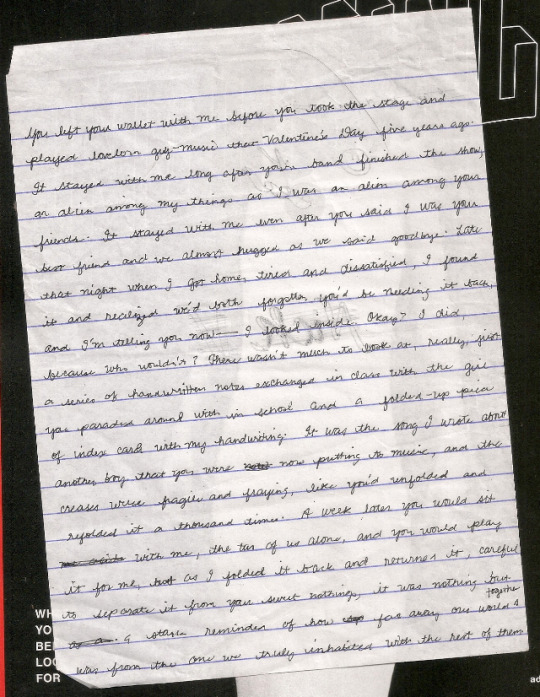 You left your wallet with me before you took the stage and
played lovelorn gig-music that Valentine's Day five years ago.
It stayed with me long after your band finished the show,
an alien among my things as I was an alien among your
friends. It stayed with me even after you said I was your
best friend and we almost hugged as we said goodbye. Late
that night when I got home, tired and dissatisfied, I found
it and realized we'd both forgotten, you'd be needing it back,
and I'm telling you now— I looked inside. Okay? I did,
because who wouldn't? There wasn't much to look at, really, just
a series of handwritten notes exchanged in class with the girl
you paraded around with in school and a folded-up piece
of index card with my handwriting. It was the song I wrote about
another boy that you were now putting to music, and the
creases were fragile and fraying, like you'd unfolded and
refolded it a thousand times. A week later you would sit
with me, the two of us alone, and you would play
it for me, but as I folded it back and returned it, careful
to separate it from your sweet nothings, it was nothing but
a stark reminder of how far away our world together
was from the one we truly inhabited with the rest of them
WH
YO
BE
LOO
FOR
ad